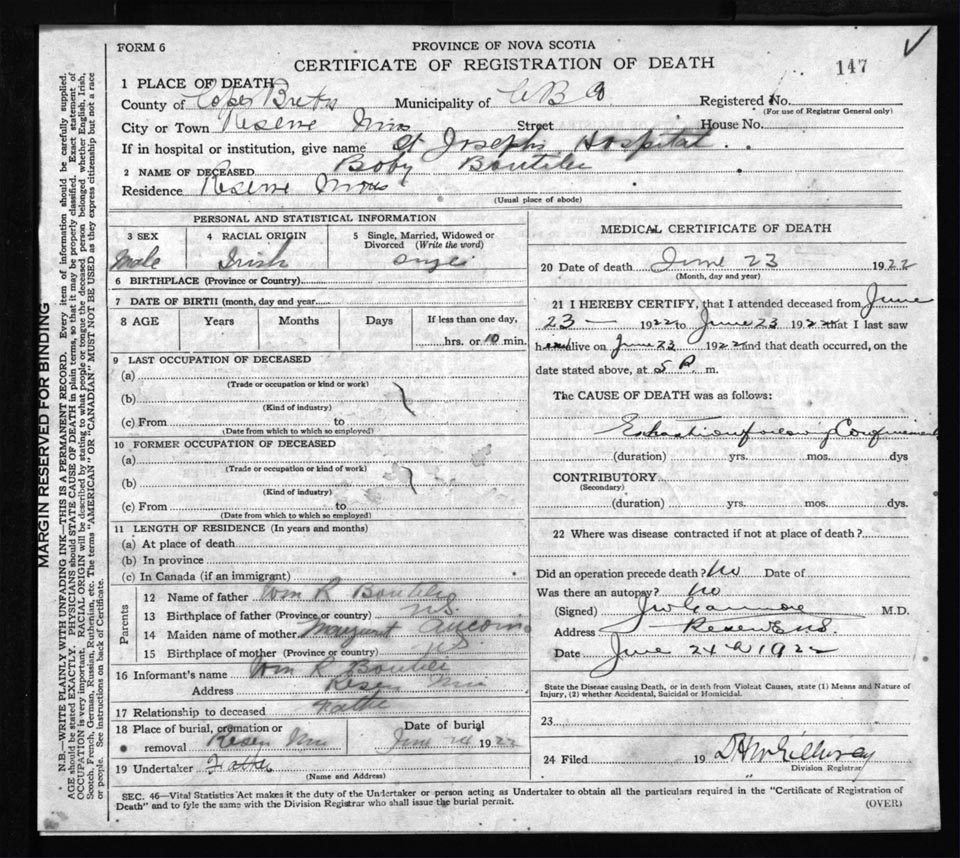 FORM 6
PROVINCE OF NOVA SCOTIA
CERTIFICATE OF REGISTRATION OF DEATH
147
1 PLACE OF DEATH
County of Cape Breton Municipality of C B Registered No.
(For use of Registrar General only)
City or Town Reserve Mines Street House No.
If in hospital or institution, give name St Josephs Hospital.
2 NAME OF DECEASED Boby Boutilier
Residence Reserve Mines
(Usual place of abode)
PERSONAL AND STATISTICAL INFORMATION
3 SEX 4 RACIAL ORIGIN 5 Single, Married, Widowed or Divorced (Write the word)
Male Irish Single
6 BIRTHPLACE (Province or Country)
7 DATE OF BIRTH (month, day and year)
8 AGE Years Months Days If less than one day,
hrs. or 10 min.
9 LAST OCCUPATION OF DECEASED
(a)
(Trade or occupation or kind or work)
(b)
(Kind of industry)
(c) From to
(Date from which to which so employed)
10 FORMER OCCUPATION OF DECEASED
(a)
(Trade or occupation or kind of work)
(b)
(Kind of industry)
(c) From to
(Date from which to which so employed)
11 LENGTH OF RESIDENCE (In years and months)
(a) At place of death
(b) In province
(c) In Canada (if an immigrant)
Parents
12 Name of father Wm R Boutilier
13 Birthplace of father (Province or country) N.S.
14 Maiden name of mother Margaret Aucoin
15 Birthplace of mother (Province or country)
16 Informant's name Wm R Boutilier
Address Reserve Mines
17 Relationship to deceased Father
18 Place of burial, cremation or removal Reserve Mines
Date of burial June 24 1922
19 Undertaker Father
(Name and Address)
MEDICAL CERTIFICATE OF DEATH
20 Date of death June 23 1922
(Month, day and year)
21 I HEREBY CERTIFY, that I attended deceased from June
23 1922 to June 23 1922 that I last saw
h alive on June 23 1922 and that death occurred, on the
date stated above, at 5 P m.
The CAUSE OF DEATH was as follows:
Exhaustion following Confinement
(duration) yrs. mos. dys
CONTRIBUTORY
(Secondary)
(duration) yrs. mos. dys.
22 Where was disease contracted if not at place of death?
Did an operation precede death? No Date of
Was there an autopsy? No
(Signed) M.D.
Address Reserve N.S.
Date June 24th 1922
State the Disease causing Death, or in death from Violent Causes, state (1) Means and Nature of
Injury, (2) whether Accidental, Suicidal or Homicidal.
23
24 Filed 19
Division Registrar
SEC. 46—Vital Statistics Act makes it the duty of the Undertaker or person acting as Undertaker to obtain all the particulars required in the "Certificate of Registration of
Death" and to fyle the same with the Division Registrar who shall issue the burial permit.
(OVER)
MARGIN RESERVED FOR BINDING
N.B.—WRITE PLAINLY WITH UNFADING INK—THIS IS A PERMANENT RECORD. Every item of information should be carefully supplied.
AGE should be stated EXACTLY. PHYSICIANS should STATE CAUSE OF DEATH in plain terms, so that it may be properly classified. Exact statement of
OCCUPATION is very important. RACIAL ORIGIN will be described by stating to what people or tongue the deceased person belonged whether English, Irish,
Scotch, French, German, Russian, Ruthenian, etc. The terms "AMERICAN" OR "CANADIAN" MUST NOT BE USED as they express citizenship but not a race
or people. See instructions on back of Certificate.